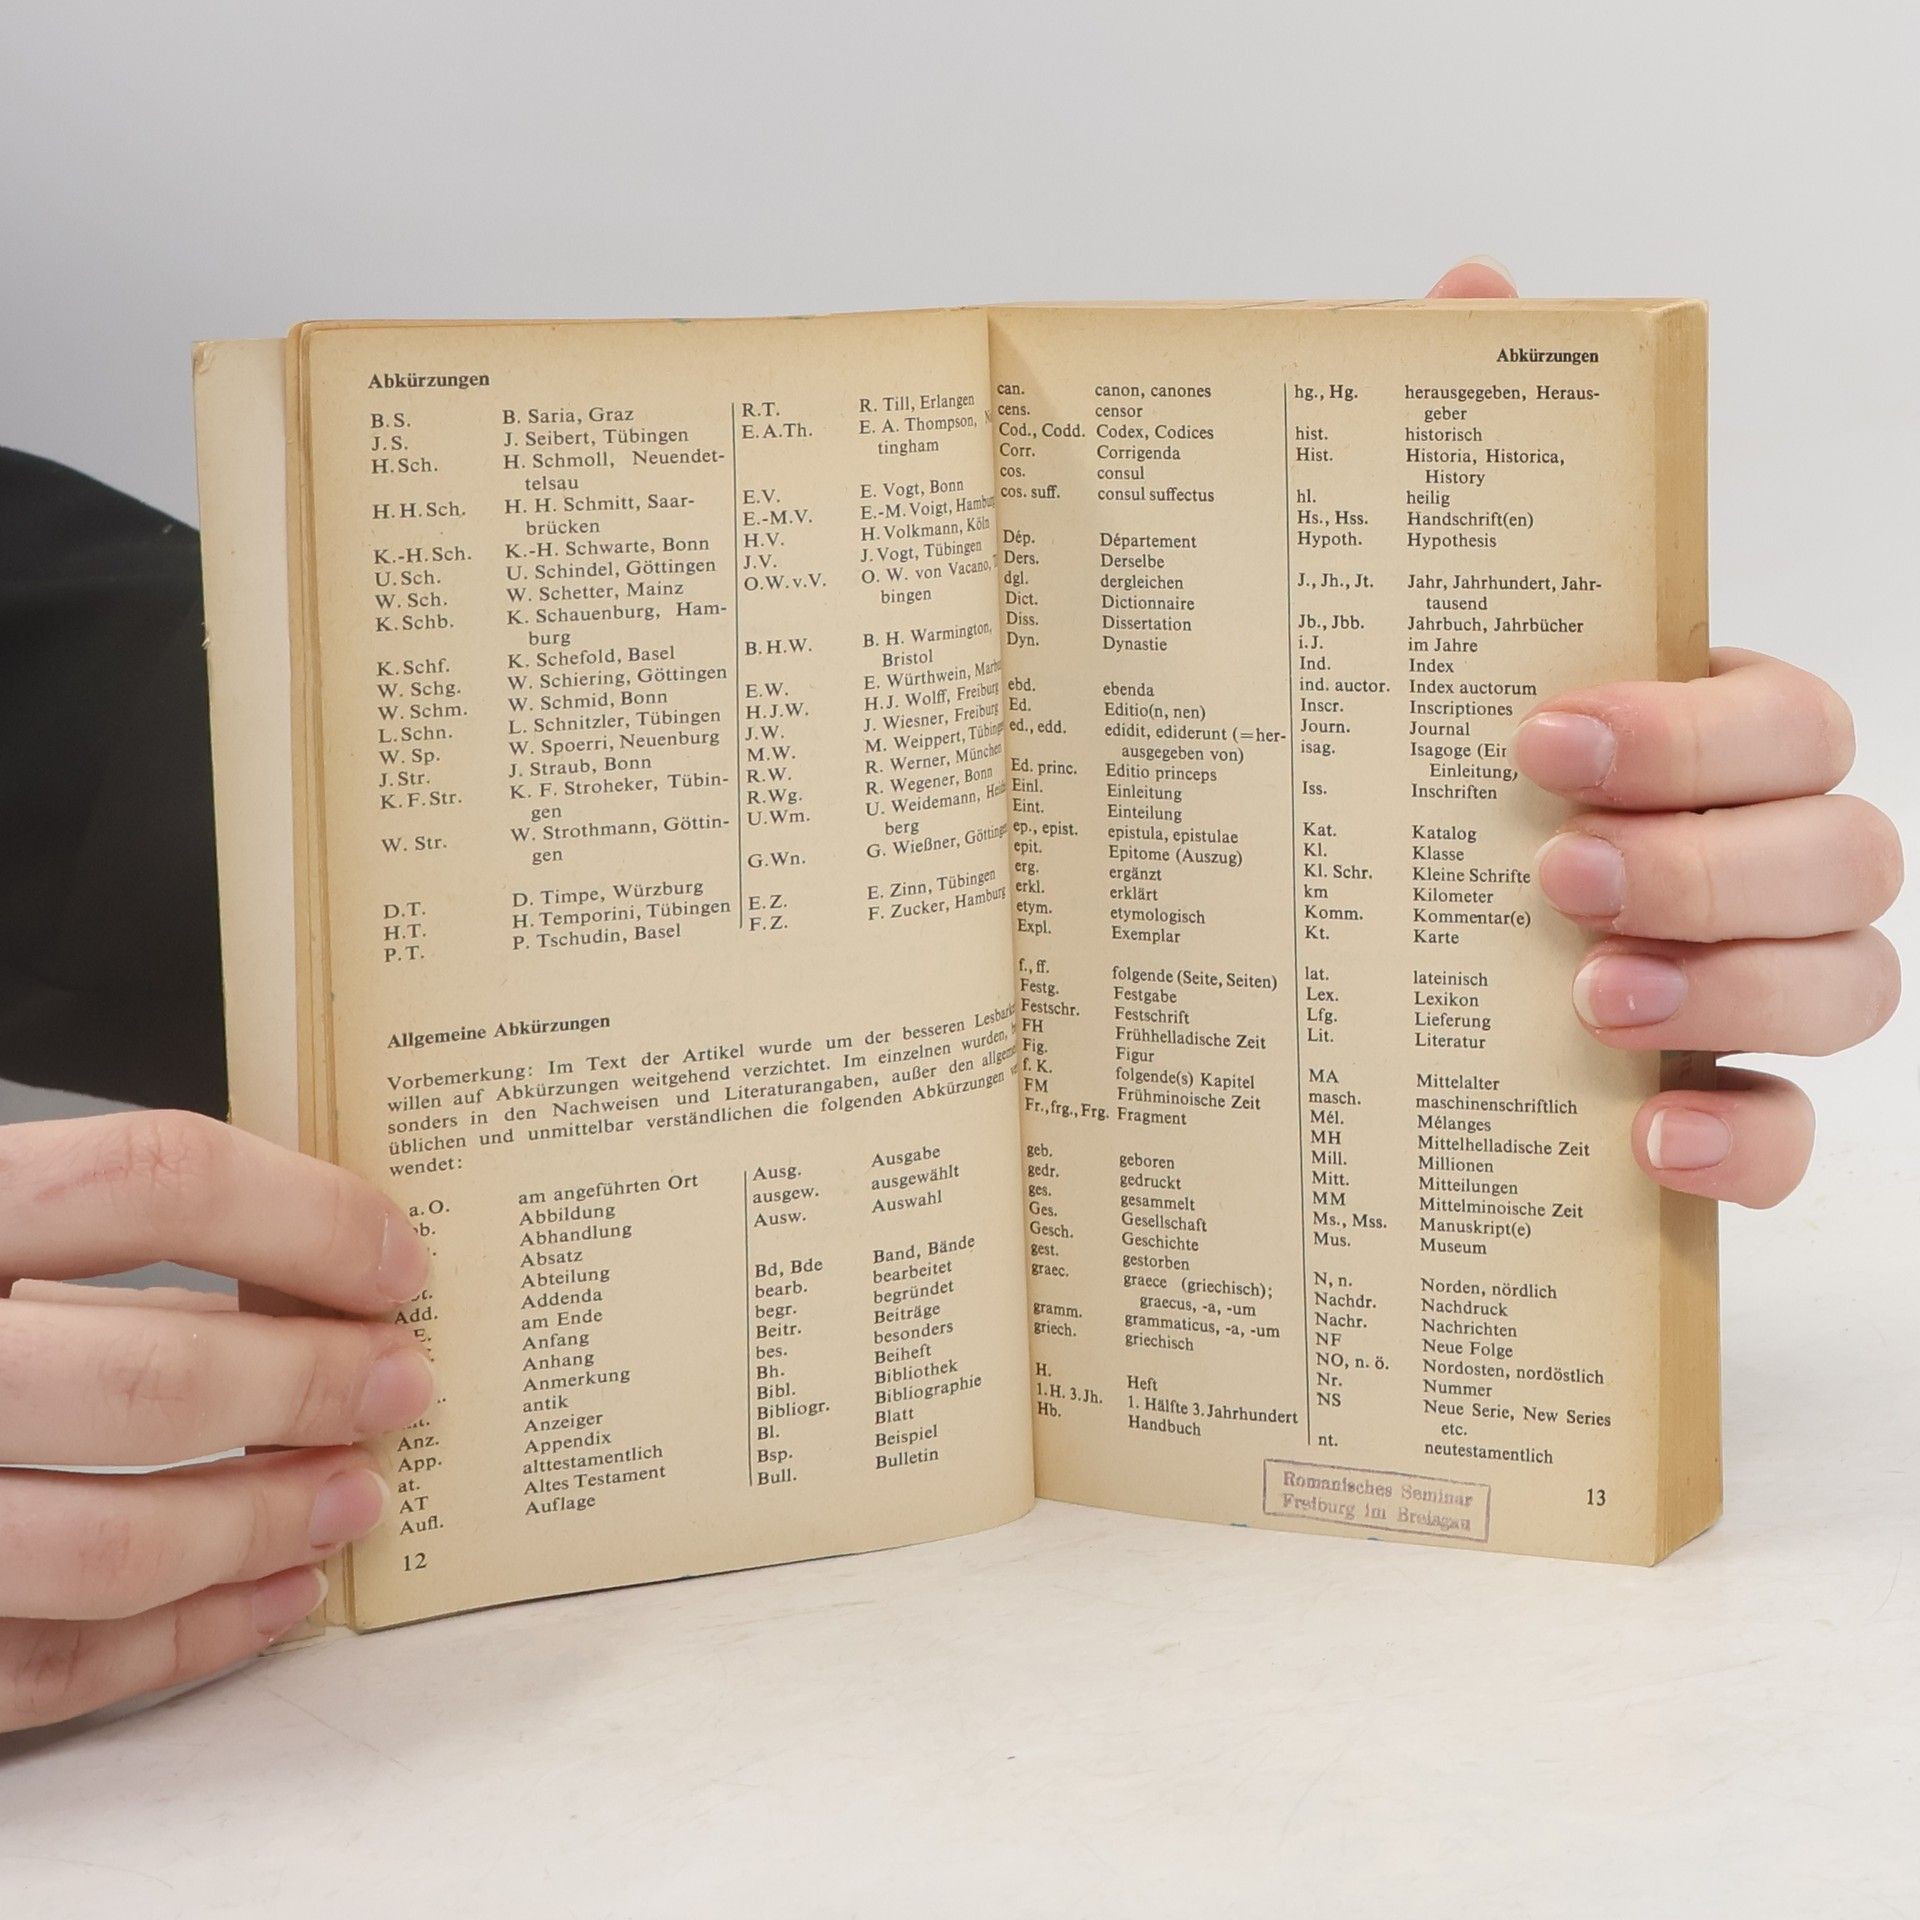 Abkürzungen
B.S. B. Saria, Graz
J.S. J. Seibert, Tübingen
H.Sch. H. Schmoll, Neuendet-
telsau
H.H.Sch. H. H. Schmitt, Saar-
brücken
K.-H.Sch. K.-H. Schwarte, Bonn
U.Sch. U. Schindel, Göttingen
W.Sch. W. Schetter, Mainz
K.Schb. K. Schauenburg, Ham-
burg
K.Schf. K. Schefold, Basel
W.Schg. W. Schiering, Göttingen
W.Schm. W. Schmid, Bonn
L.Schn. L. Schnitzler, Tübingen
W.Sp. W. Spoerri, Neuenburg
J.Str. J. Straub, Bonn
K.F.Str. K. F. Stroheker, Tübin-
gen
W.Str. W. Strothmann, Göttin-
gen
D.T. D. Timpe, Würzburg
H.T. H. Temporini, Tübingen
P.T. P. Tschudin, Basel
R.T. R. Till, Erlangen
E.A.Th. E. A. Thompson,
tingham
E.V. E. Vogt, Bonn
E.-M.V. E.-M. Voigt, Hamburg
H.V. H. Volkmann, Köln
J.V. J. Vogt, Tübingen
O.W.v.V. O. W. von Vacano,
bingen
B.H.W. B. H. Warmington,
Bristol
E.W. E. Würthwein,
H.J.W. H.J. Wolff, Freiburg
J.W. J. Wiesner, Freiburg
M.W. M. Weippert,
R.W. R. Werner, München
R.Wg. R. Wegener, Bonn
U.Wm. U. Weidemann,
berg
G.Wn. G. Wießner, Göttingen
E.Z. E. Zinn, Tübingen
F.Z. F. Zucker, Hamburg
Allgemeine Abkürzungen
Vorbemerkung: Im Text der Artikel wurde um der besseren
willen auf Abkürzungen weitgehend verzichtet. Im einzelnen wurden,
sonders in den Nachweisen und Literaturangaben, außer den
üblichen und unmittelbar verständlichen die folgenden Abkürzungen
wendet:
a.O. am angeführten Ort
Abbildung
Abhandlung
Absatz
Abteilung
Add. Addenda
am Ende
Anfang
Anhang
Anmerkung
antik
Anz. Anzeiger
App. Appendix
at. alttestamentlich
AT Altes Testament
Aufl. Auflage
Ausg. Ausgabe
ausgew. ausgewählt
Ausw. Auswahl
Bd, Bde Band, Bände
bearb. bearbeitet
begr. begründet
Beitr. Beiträge
bes. besonders
Bh. Beiheft
Bibl. Bibliothek
Bibliogr. Bibliographie
Bl. Blatt
Bsp. Beispiel
Bull. Bulletin
12
Abkürzungen
can. canon, canones
cens. censor
Cod., Codd. Codex, Codices
Corr. Corrigenda
cos. consul
cos. suff. consul suffectus
Dép. Département
Ders. Derselbe
dgl. dergleichen
Dict. Dictionnaire
Diss. Dissertation
Dyn. Dynastie
ebd. ebenda
Ed. Editio(n, nen)
ed., edd. edidit, ediderunt (=her-
ausgegeben von)
Ed. princ. Editio princeps
Einl. Einleitung
Eint. Einteilung
ep., epist. epistula, epistulae
epit. Epitome (Auszug)
erg. ergänzt
erkl. erklärt
etym. etymologisch
Expl. Exemplar
f., ff. folgende (Seite, Seiten)
Festg. Festgabe
Festschr. Festschrift
FH Frühhelladische Zeit
Fig. Figur
f. K. folgende(s) Kapitel
FM Frühminoische Zeit
Fr., frg., Frg. Fragment
geb. geboren
gedr. gedruckt
ges. gesammelt
Ges. Gesellschaft
Gesch. Geschichte
gest. gestorben
graec. graece (griechisch);
graecus, -a, -um
gramm. grammaticus, -a, -um
griech. griechisch
H. Heft
1.H. 3.Jh. 1. Hälfte 3. Jahrhundert
Hb. Handbuch
hg., Hg. herausgegeben, Heraus-
geber
hist. historisch
Hist. Historia, Historica,
History
hl. heilig
Hs., Hss. Handschrift(en)
Hypoth. Hypothesis
J., Jh., Jt. Jahr, Jahrhundert, Jahr-
tausend
Jb., Jbb. Jahrbuch, Jahrbücher
i.J. im Jahre
Ind. Index
ind. auctor. Index auctorum
Inscr. Inscriptiones
Journ. Journal
isag. Isagoge
Einleitung)
Iss. Inschriften
Kat. Katalog
Kl. Klasse
Kl. Schr. Kleine Schrifte
km Kilometer
Komm. Kommentar(e)
Kt. Karte
lat. lateinisch
Lex. Lexikon
Lfg. Lieferung
Lit. Literatur
MA Mittelalter
masch. maschinenschriftlich
Mél. Mélanges
MH Mittelhelladische Zeit
Mill. Millionen
Mitt. Mitteilungen
MM Mittelminoische Zeit
Ms., Mss. Manuskript(e)
Mus. Museum
N, n. Norden, nördlich
Nachdr. Nachdruck
Nachr. Nachrichten
NF Neue Folge
NO, n. ö. Nordosten, nordöstlich
Nr. Nummer
NS Neue Serie, New Series
etc.
nt. neutestamentlich
Romanisches Seminar
Freiburg im Breisgau
13